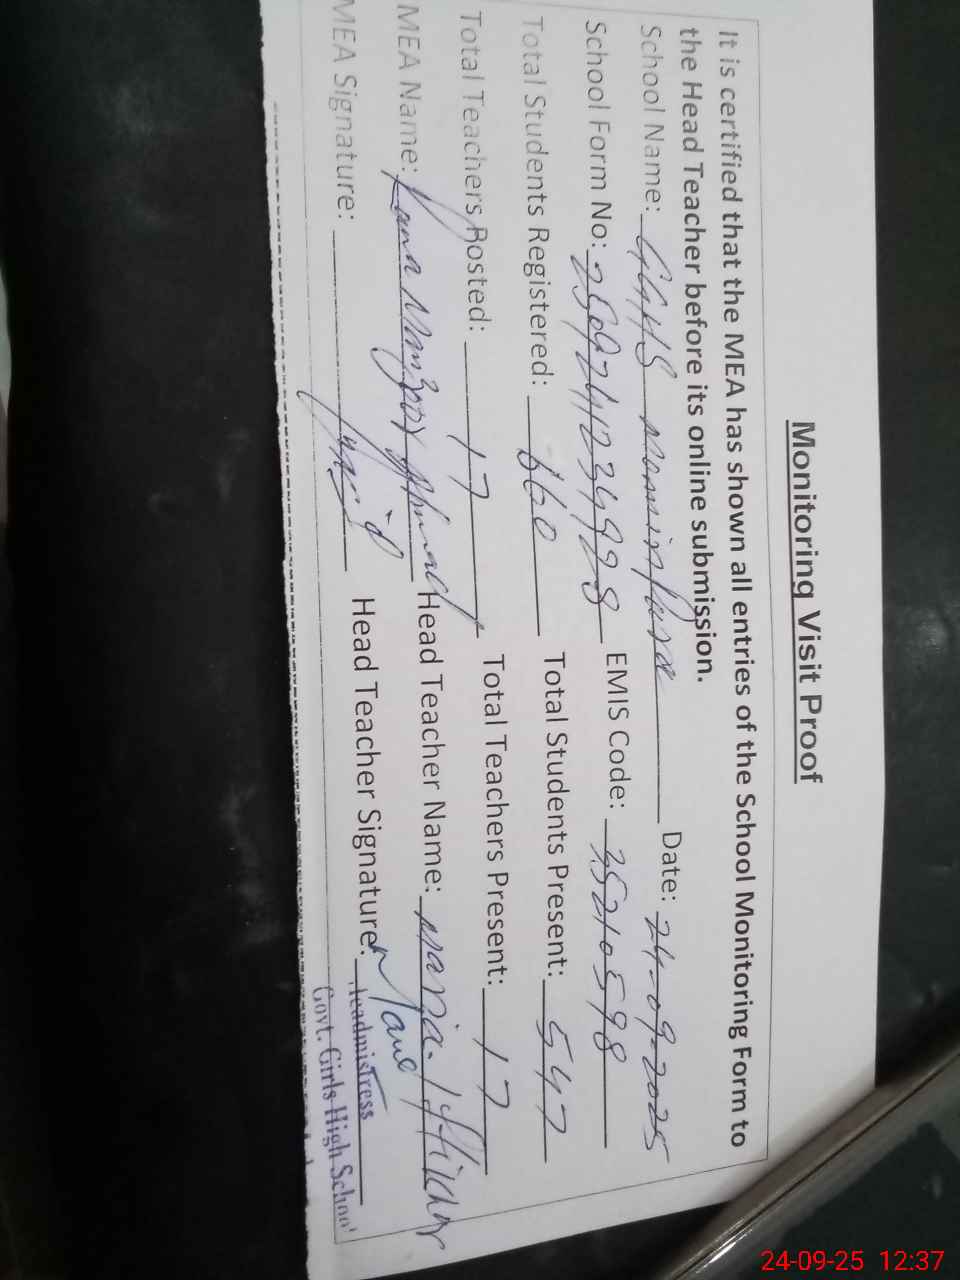 Monitoring Visit Proof
It is certified that the MEA has shown all entries of the School Monitoring Form to
the Head Teacher before its online submission.
School Name: GGHS mominpura Date: 24-09-2025
School Form No: EMIS Code: 35210598
Total Students Registered: 660 Total Students Present: 547
Total Teachers Posted: 17 Total Teachers Present: 17
MEA Name: Rana Manzoor Ahmad Head Teacher Name: Maria
MEA Signature: Head Teacher Signature:
Headmistress
Govt. Girls High School
24-09-25 12:37